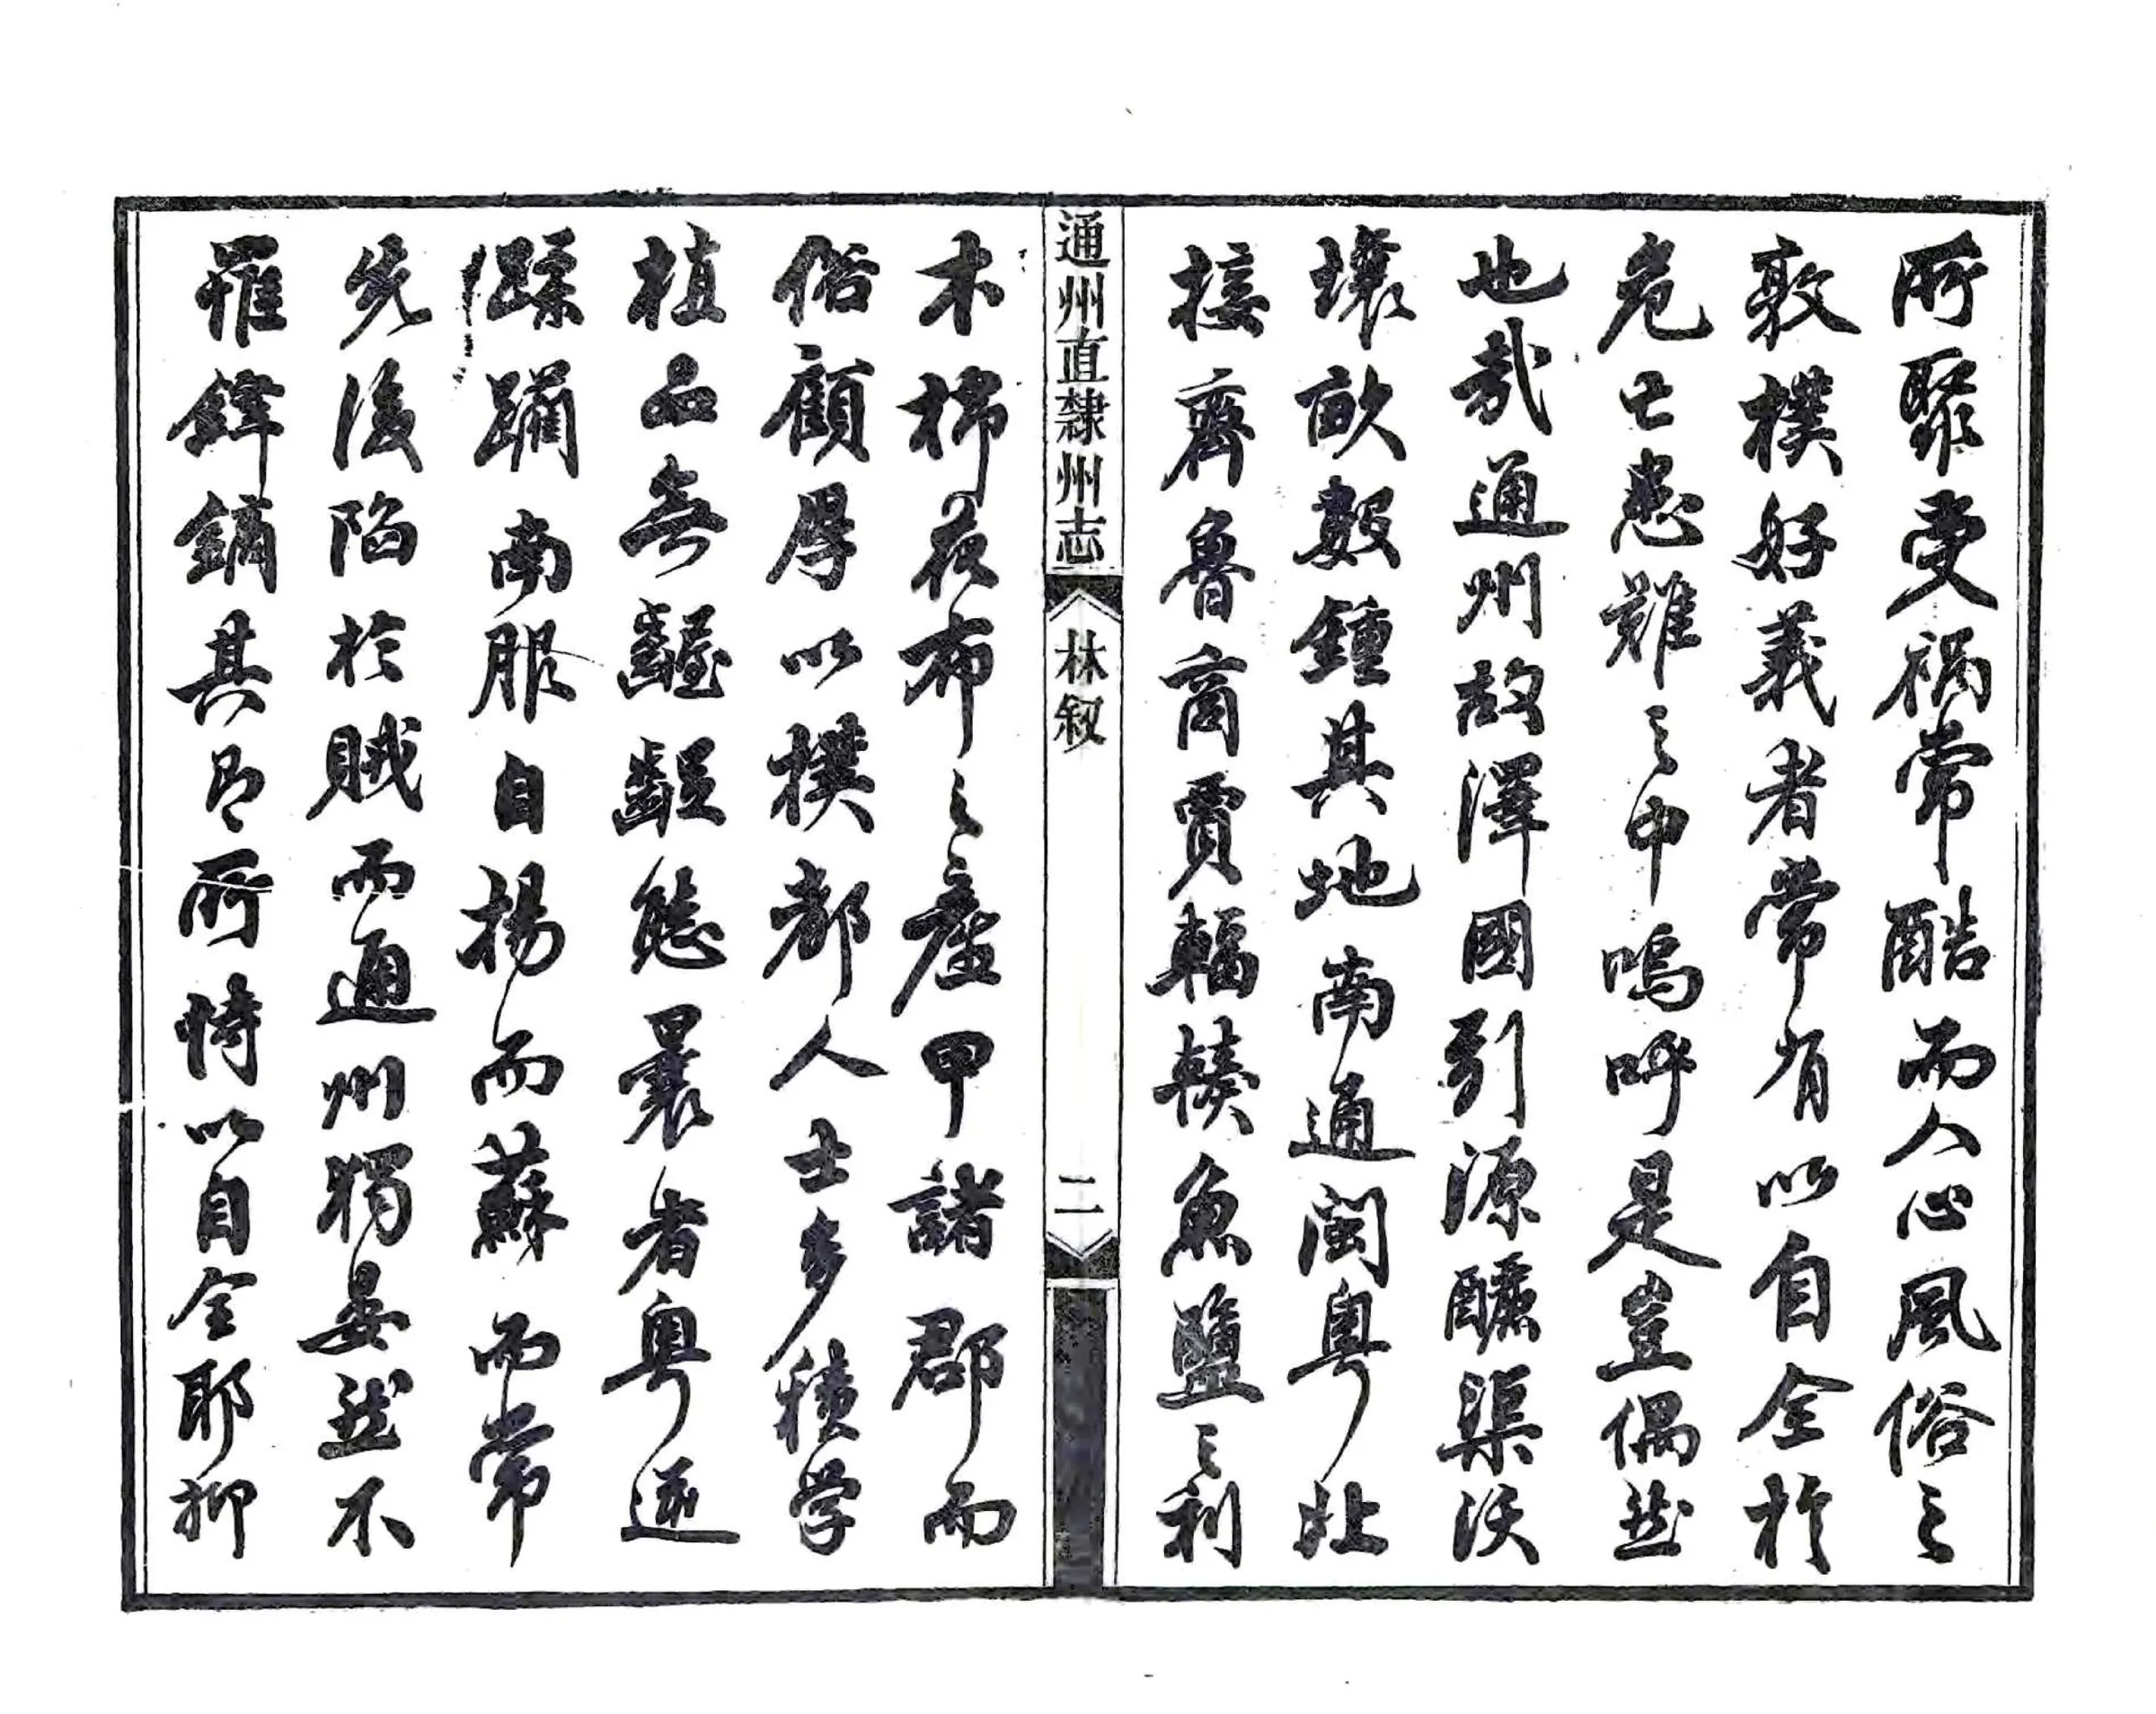 所聚受禍常酷而人心風俗之
敦樸好義者常有以自全於
危亡患難之中嗚呼是豈偶然
也哉通州故澤國引源釃渠沃
壤畝數鍾其地南通閩粤北
接齊魯商賈輻輳魚鹽之利
通州直隸州志
林叙
二
木棉苧布之產甲諸郡而
俗顧厚以樸都人士多積学
植品無齷齪態曩者粤逆
蹂躪南服自揚而蘇而常
先後陷於賊而通州獨晏然不
罹鋒鏑其即所恃以自全耶抑